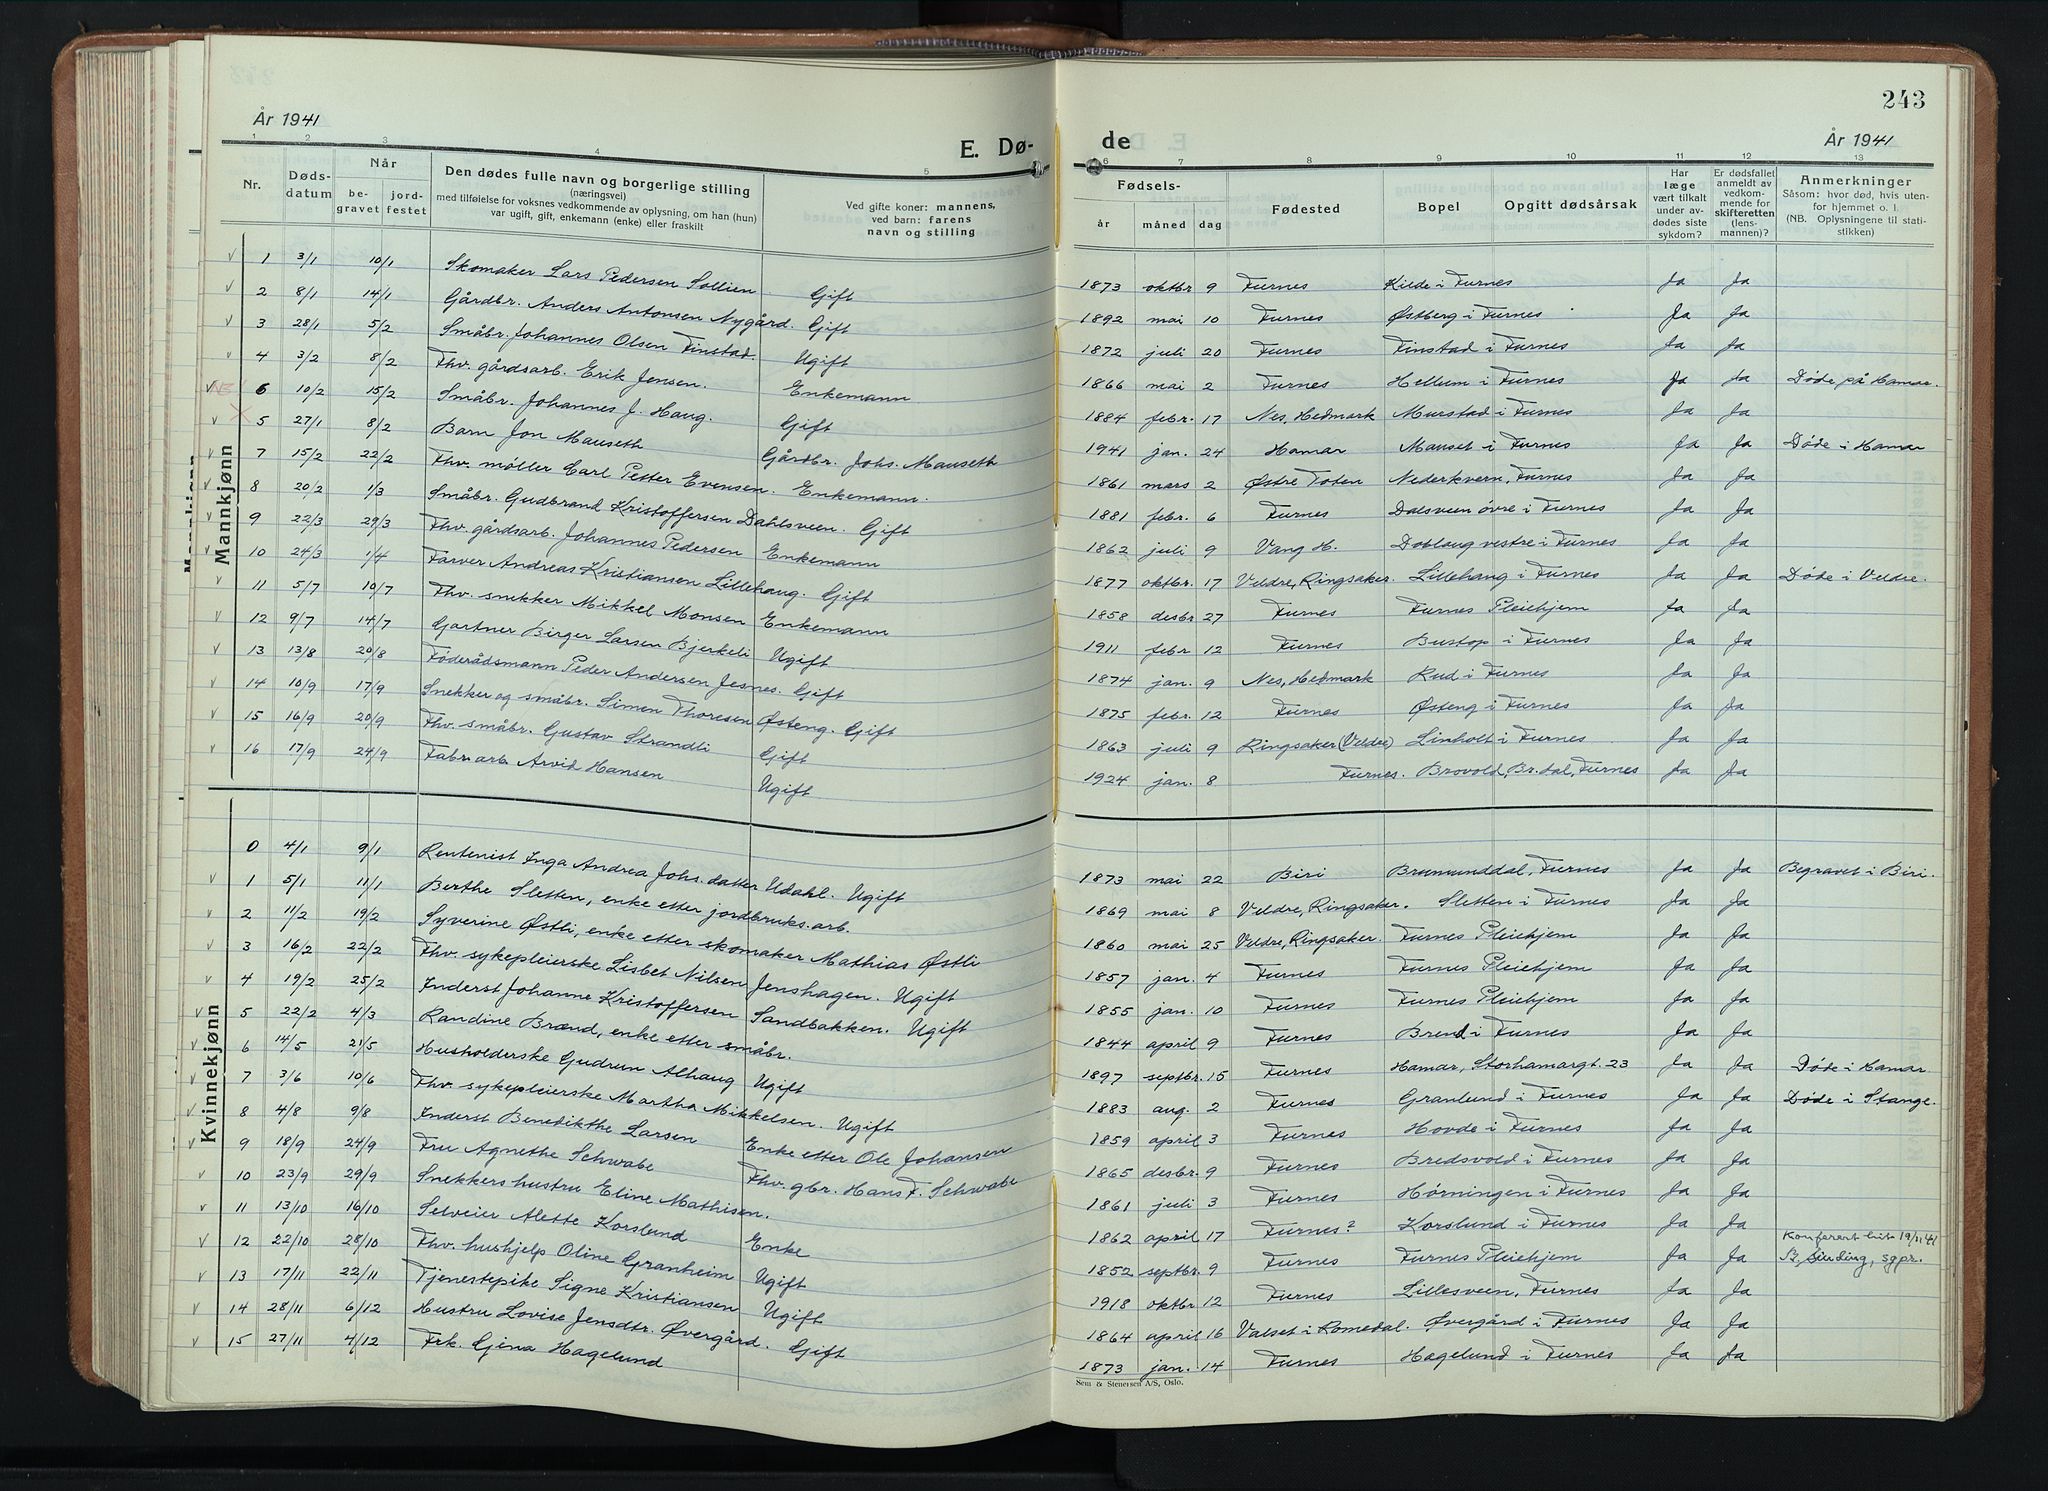 243
År 1941
E. Dø-
de
År 1941
1 2 3 4 5 6 7 8 9 10 11 12 13
Nr. Døds-datum Når be-gravet jord-festet Den dødes fulle navn og borgerlige stilling (næringsvei) med tilføielse for voksnes vedkommende av oplysning, om han (hun) var ugift, gift, enkemann (enke) eller fraskilt Ved gifte koner: mannens, ved barn: farens navn og stilling Fødsels- år måned dag Fødested Bopel Opgitt dødsårsak Har læge vært tilkalt under av-dødes siste sykdom? Er dødsfallet anmeldt av vedkom-mende for skifteretten (lens-mannen)? Anmerkninger Såsom: hvor død, hvis uten-for hjemmet o. l. (NB. Oplysningene til stati-stikken)
Mannkjønn
v 1 3/1 10/1 Skomaker Lars Pedersen Sollien Gift 1873 oktbr 9 Furnes Kilde i Furnes Ja Ja
v 2 8/1 14/1 Gårdbr. Anders Antonsen Nygård. Gift 1892 mai 10 Furnes Østberg i Furnes Ja Ja
v 3 28/1 5/2 Småbr. Johannes Olsen Finstad. Ugift 1872 juli 20 Furnes Finstad i Furnes Ja Ja
v 4 3/2 8/2 Fhv. gårdsarb. Erik Jensen. Enkemann 1866 mai 2 Furnes Hellum i Furnes Ja Ja Døde på Hamar.
v NB! 6 10/2 15/2 Småbr. Johannes J. Haug. Gift 1884 febr. 17 Nes, Hedmark Murstad i Furnes Ja Ja
v X 5 27/1 8/2 Barn Jon Mauseth Gårdbr. Johs. Mauseth 1941 jan. 24 Hamar Mauset i Furnes Ja Ja Døde i Hamar
v 7 15/2 22/2 Fhv. møller Carl Petter Evensen. Enkemann. 1861 mars 2 Østre Toten Nederkvern, Furnes Ja Ja
v 8 20/2 1/3 Småbr. Gudbrand Kristoffersen Dahlsveen. Gift 1881 febr. 6 Furnes Dalsveen øvre i Furnes Ja Ja
v 9 22/3 29/3 Fhv. gårdsarb. Johannes Pedersen Enkemann 1862 juli 9 Vang H. Doblaug vestre i Furnes Ja Ja
v 10 24/3 1/4 Farver Andreas Kristiansen Lillehaug. Gift 1877 oktbr. 17 Veldre, Ringsaker. Lillehaug i Furnes Ja Ja Døde i Veldre.
v 11 5/7 10/7 Fhv. snekker Mikkel Monsen Enkemann 1858 desbr 27 Furnes Furnes Pleiehjem Ja Ja
v 12 9/7 14/7 Gartner Birger Larsen Bjerkeli Ugift 1911 febr 12 Furnes Bustop i Furnes Ja Ja
v 13 13/8 20/8 Føderådsmann Peder Andersen Jesnes. Gift 1874 jan. 9 Nes, Hedmark Rud i Furnes Ja Ja
v 14 10/9 17/9 Snekker og småbr. Simen Thoresen Østeng. Gift 1875 febr. 12 Furnes Østeng i Furnes Ja Ja
v 15 16/9 20/9 Fhv. småbr. Gustav Strandli Gift 1863 juli 9 Ringsaker (Veldre) Linholt i Furnes Ja Ja
v 16 17/9 24/9 Fabr.arb. Arvid Hansen Ugift 1924 jan. 8 Furnes. Brovold, Br.dal, Furnes Ja Ja
Kvinnekjønn
0 4/1 9/1 Rentenist Inga Andrea Johs.datter Udahl. Ugift 1873 mai 22 Biri Brumunddal, Furnes Ja Ja Begravet i Biri.
v 1 5/1 11/1 Berthe Sletten, enke etter jordbruks.arb. 1869 mai 8 Veldre, Ringsaker. Sletten i Furnes Ja Ja
v 2 11/2 19/2 Syverine Østli, enke etter skomaker Mathias Østli 1860 mai 25 Veldre, Ringsaker. Furnes Pleiehjem Ja Ja
v 3 16/2 22/2 Fhv. sykepleierske Lisbet Nilsen Jenshagen. Ugift 1857 jan. 4 Furnes Furnes Pleiehjem Ja Ja
v 4 19/2 25/2 Inderst Johanne Kristoffersen Sandbakken. Ugift 1855 jan. 10 Furnes Furnes Pleiehjem Ja Ja
v 5 22/2 4/3 Randine Brænd, enke etter småbr. 1844 april 9 Furnes Brend i Furnes Ja Ja
v 6 14/5 21/5 Husholderske Gudrun Alhaug Ugift 1897 septbr. 15 Furnes Hamar, Storhamargt. 23 Ja Ja Døde i Hamar.
v 7 3/6 10/6 Fhv. sykepleierske Martha Mikkelsen. Ugift 1883 aug. 2 Furnes Granlund i Furnes Ja Ja Døde i Stange.
v 8 4/8 9/8 Inderst Benedikthe Larsen Enke etter Ole Johansen 1859 april 3 Furnes Hovde i Furnes Ja Ja
v 9 18/9 24/9 Fru Agnethe Schwabe Fhv. gbr. Hans F. Schwabe 1865 desbr. 9 Furnes Bredsvold i Furnes Ja Ja
v 10 23/9 29/9 Snekkers hustru Eline Mathisen. 1861 juli 3 Furnes Hørningen i Furnes Ja Ja
v 11 13/10 16/10 Selveier Alette Korslund Enke 1862 april 17 Furnes? Korslund i Furnes Ja Ja
v 12 22/10 28/10 Fhv. hushjelp Oline Granheim Ugift 1852 septbr. 9 Furnes Furnes Pleiehjem Ja Ja Konferert hit 19/11 '41 sgpr.
v 13 17/11 22/11 Tjenestepike Signe Kristiansen Ugift 1918 oktbr 12 Furnes Lillesveen, Furnes Ja Ja
v 14 28/11 6/12 Hustru Lovise Jensdtr. Øvergård. Gift 1864 april 16 Valset i Romedal. Øvergård i Furnes Ja Ja
v 15 27/11 4/12 Frk. Gjena Hagelund 1873 jan. 14 Furnes Hagelund i Furnes Ja Ja
Sem & Stenersen A/S, Oslo.